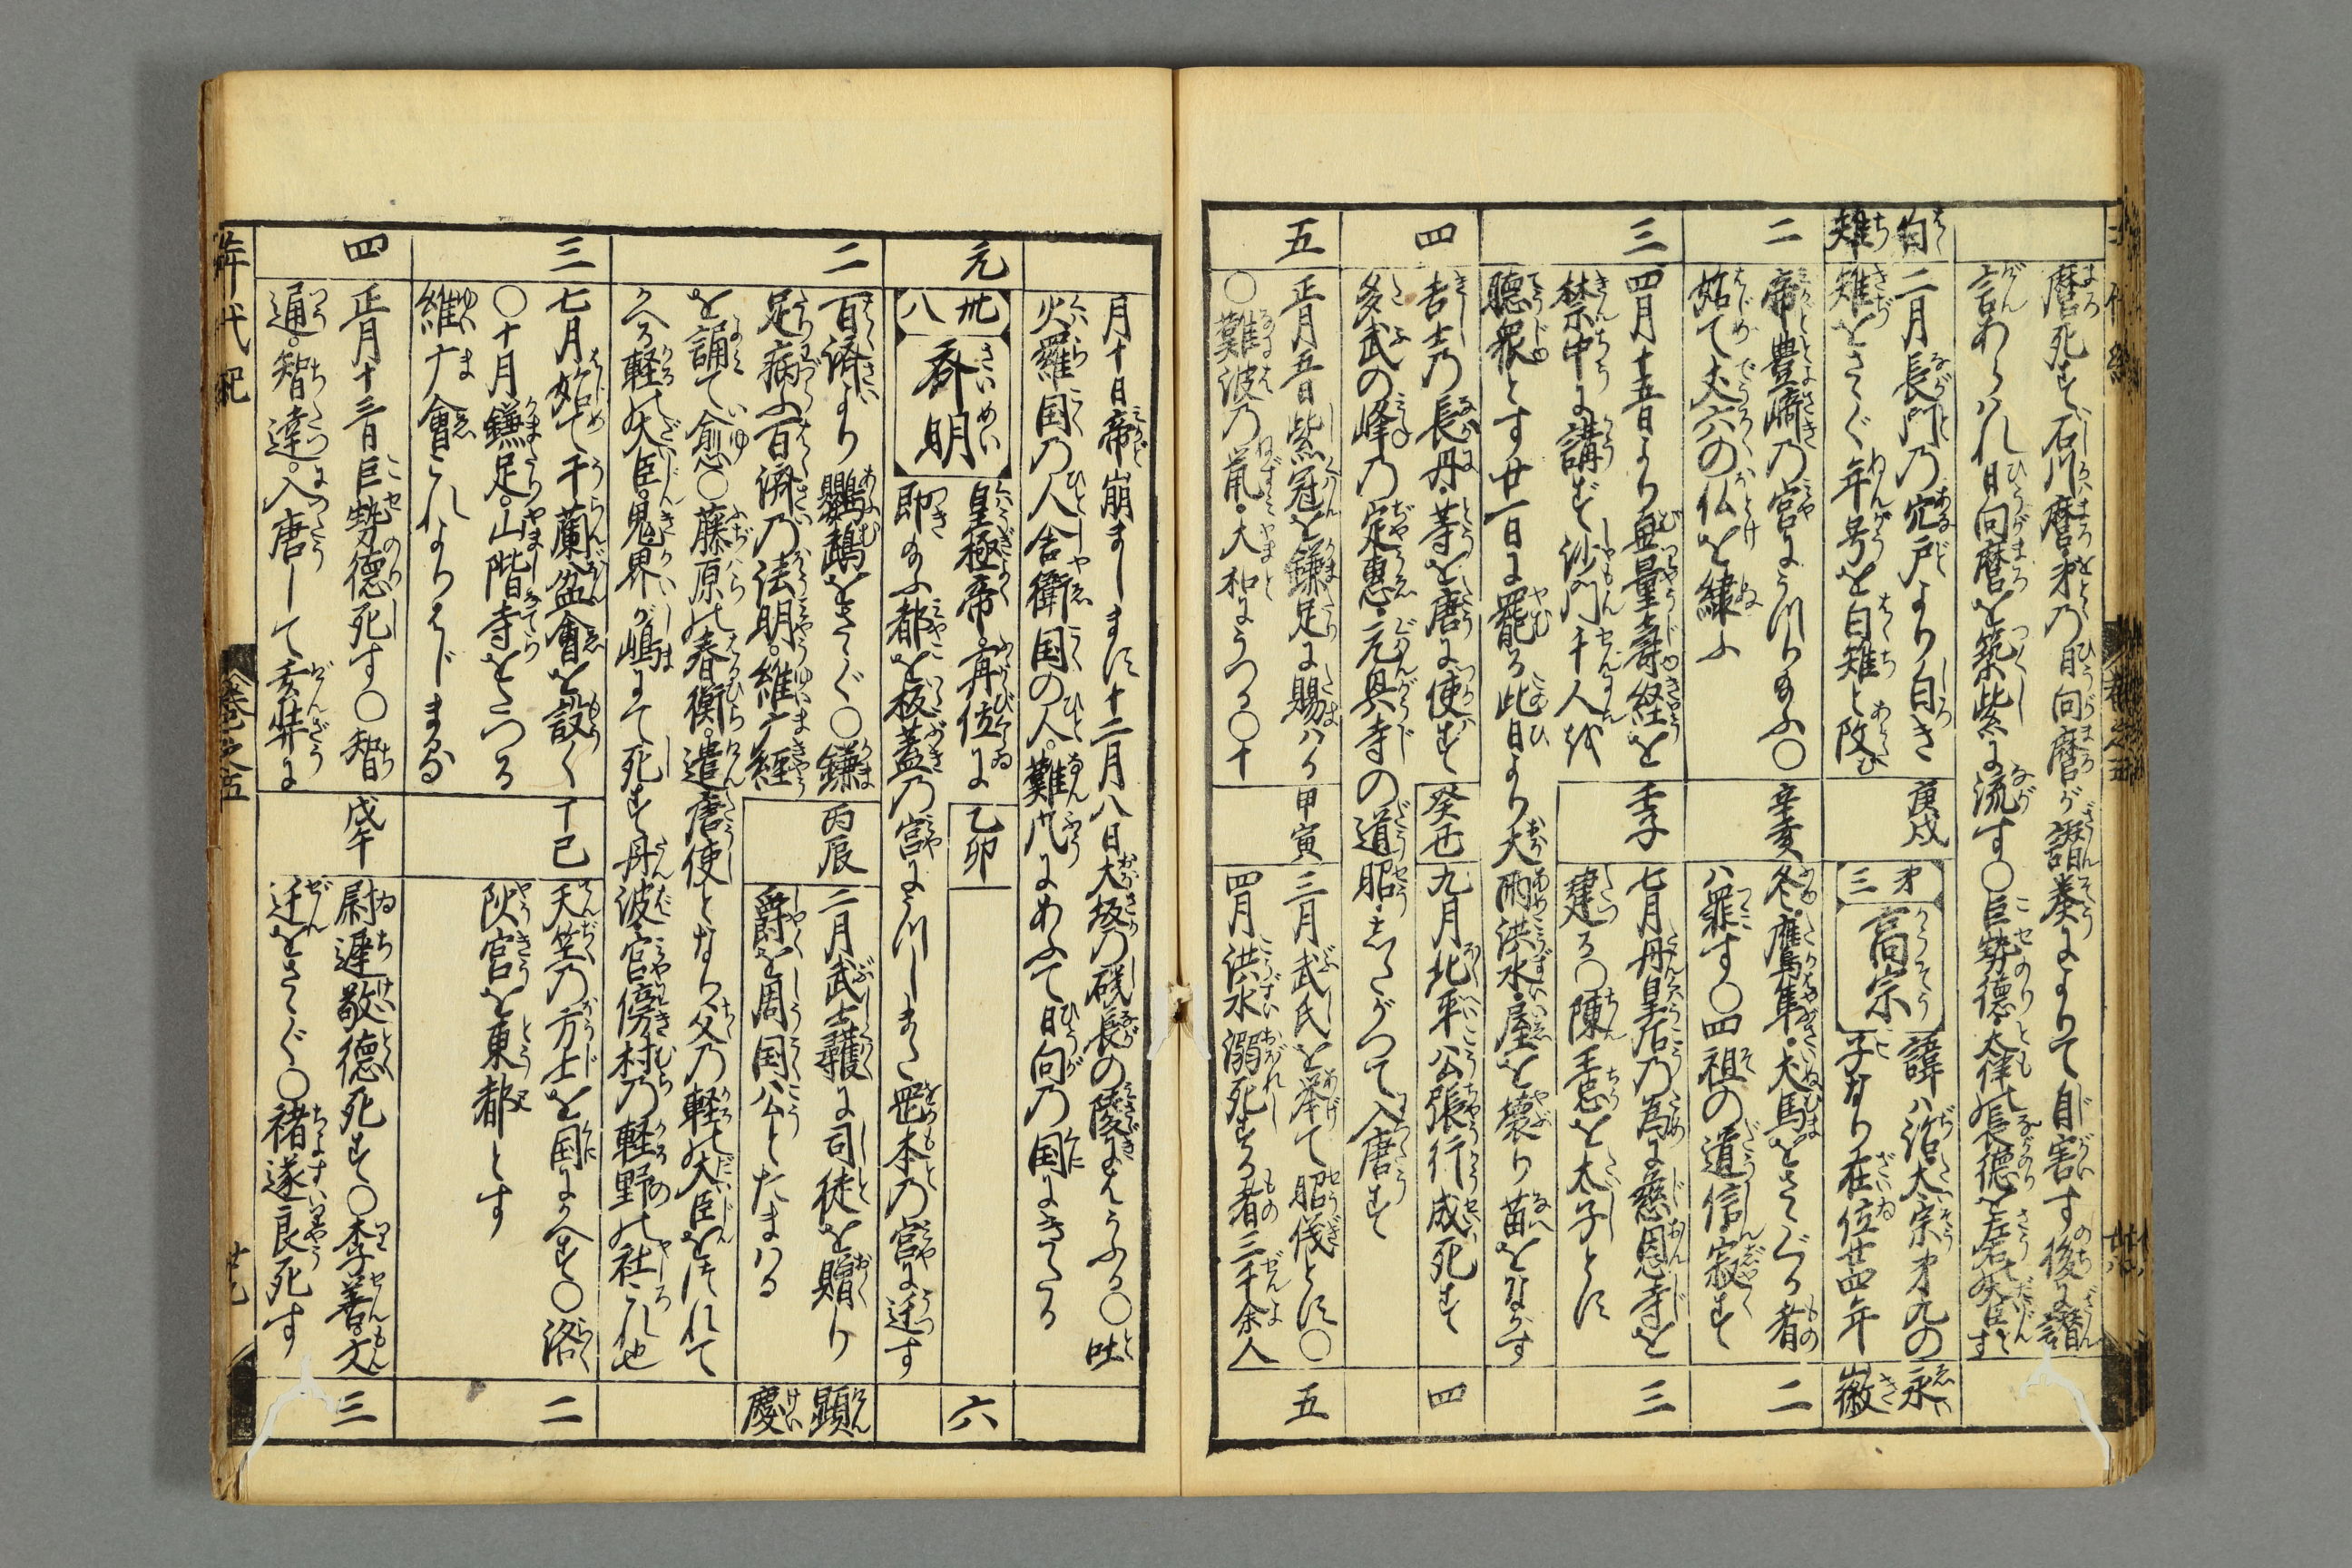 麿死す石川麿弟乃日向麿が譖奏によりて自害す後に譖
言あらハれ日向麿を築紫に流す〇巨勢徳太大伴長徳を左右大臣とす
白雉
二月長門乃宍戸より白き
雉をさゝぐ年号を白雉と改む
庚戌
第三
高宗
諱ハ治太宗第九の
子なり在位卅四年
永徽
二
帝豊﨑乃宮にうつり給ふ〇
始て丈六の仏を繍ふ
辛亥
冬鷹隼犬馬をさゝぐる者
ハ罪す〇四祖の道信寂す
二
三
四月十五日より無量壽経を
禁中に講ず沙門千人を
聴衆とす廿一日に罷る此日より大雨洪水屋を壊り苗をながす
壬子
七月丹皇后乃為に慈恩寺を
建る〇陳王忠を太子とす
三
四
吉士乃長丹等を唐に使ず
多武の峰乃定惠元興寺の道昭したがつて入唐す
癸丑
九月北平公張行成死す
四
五
正月五日紫冠を鎌足に賜ハる
〇難波乃鼠大和にうつる〇十
甲寅
三月武氏を挙て昭儀とす〇
四月洪水溺死する者三千余人
五
月十日帝崩まします十二月八日大坂乃磯長の陵にはうふる〇吐
火羅国乃人舎衛国の人難風にあふて日向乃国にきたる
元
卅八
斉明
皇極帝再位に
即給ふ都を板蓋乃宮にうつしまた岡本乃宮に迁す
乙卯
六
二
百済より鸚鵡をさゝぐ〇鎌
足病ふ百済乃法明維广経
を誦て愈〇藤原の春衡遣唐使となり父乃軽の大臣をつれて
かへる軽の大臣鬼界が嶋にて死す丹波宮傍村乃軽野の社これ也
丙辰
二月武士彠に司徒を贈り
爵を周国公とたまハる
顕慶
三
七月始て于蘭盆會を設く
〇十月鎌足山階寺をたつる
維广會これよりはじまる
丁巳
天竺乃方士を国にかへす〇洛
陽宮を東都とす
二
四
正月十三日巨勢徳死す〇智
通智達入唐して玄奘に
戊午
尉遅敬徳死す〇李善文
迁をさゝぐ〇褚遂良死す
三
年代紀
巻之五
廿九